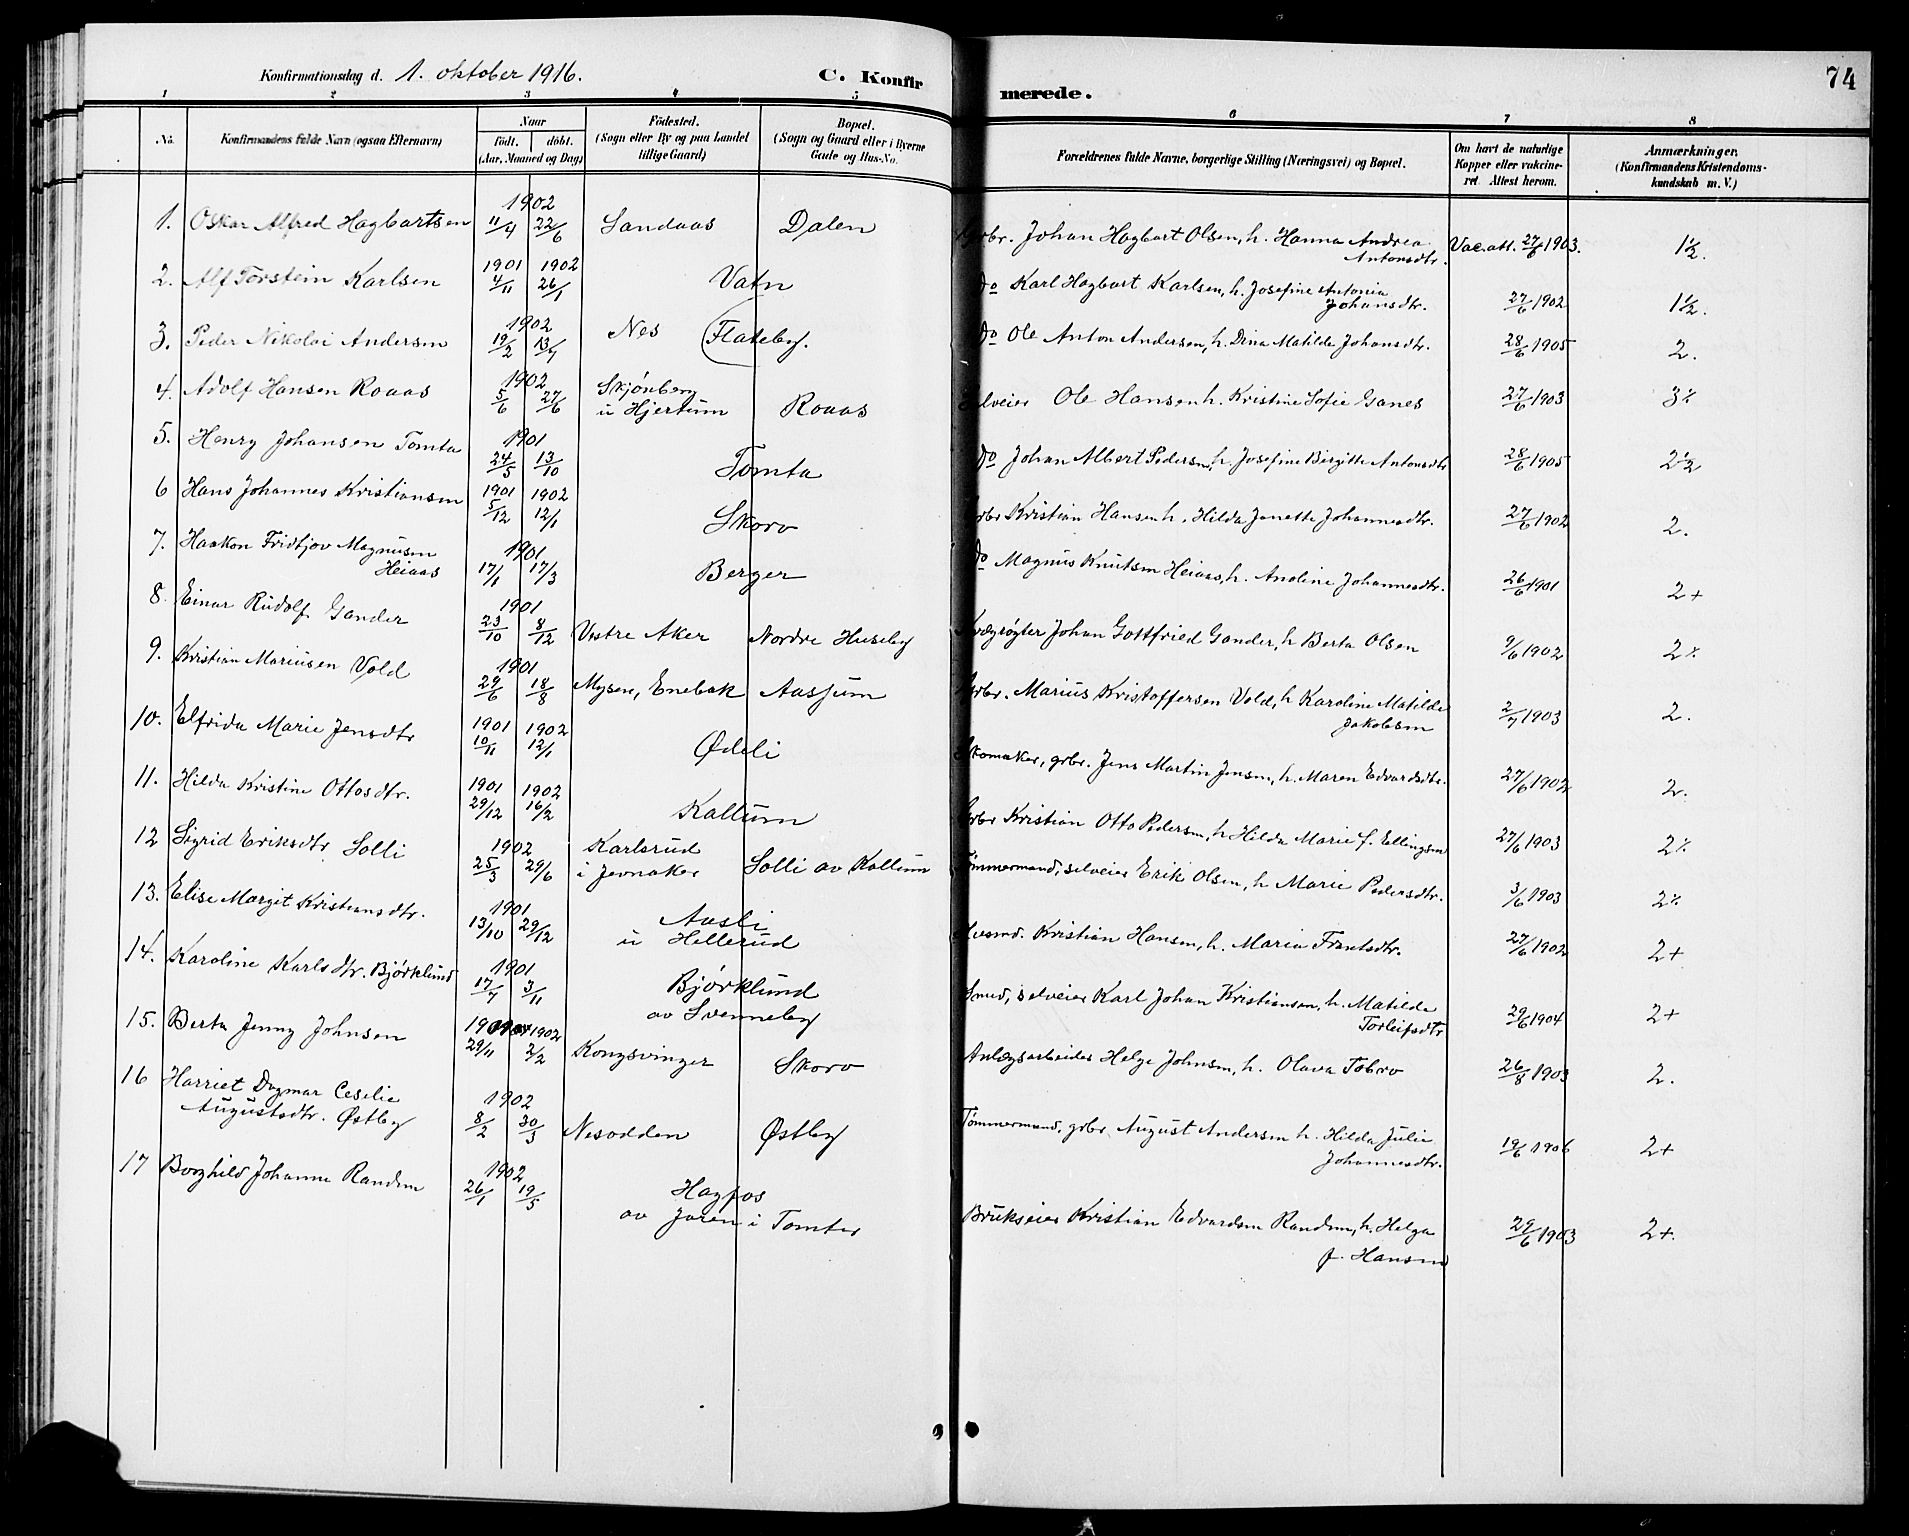 Konfirmationsdag d. 1. oktober 1916. C. Konfirmerede. 74
1 2 3 4 5 6 7 8
No. Konfirmandens fulde Navn (ogsaa Efternavn) Naar födt. döbt. (Aar, Maaned og Dag) Födested. (Sogn eller By og paa Landet tillige Gaard) Bopæl. (Sogn og Gaard eller i Byerne Gade og Hus-No. Forældrenes fulde Navne, borgerlige Stilling (Næringsvei) og Bopæl. Om havt de naturlige Kopper eller vakcineret. Attest herom. Anmærkninger. (Konfirmandens Kristendomskundskab m. V.)
1. Oskar Alfred Hagbartsen 1902 11/4 22/6 Sandaas Dalen Grbr. Johan Hagbart Olsen, h. Hanna Andrea Antonsdtr. Vac.att. 27/6 1903. 1½.
2. Alf Torstein Karlsen 1901 4/11 1902 26/1 Vatn do Karl Hagbart Karlsen, h. Josefine Antonia Johansdtr. 27/6 1902 1½.
3. Peder Nikolai Andersen 1902 19/2 13/7 Nes (Flateby. do Ole Anton Andersen, h. Dina Matilde Johansdtr. 28/6 1905 2.
4. Adolf Hansen Roaas 1902 5/6 27/6 Skjönberg u Hjertum Roaas Selveier Ole Hansen h. Kristine Sofie Ganes 27/6 1903 3%
5. Henry Johansen Tomta 1901 24/5 13/10 Tomta do Johan Albert Pedersen, h. Josefine Birgitte Antonsdtr 28/6 1905 2½
6 Hans Johannes Kristiansen 1901 5/12 1902 12/1 Skorv Grbr Kristian Hansen h. Hilda Janette Johannesdtr. 27/6 1902 2.
7. Haakon Fridtjov Magnusen Heiaas 1901 17/1 17/3 Berger do Magnus Knutsen Heiaas, h. Andine Johannesdtr. 26/6 1901 2+
8. Einar Rudolf Gander 1901 23/10 8/12 Vestre Aker Nordre Huseby Kvægrøgter Johan Gottfried Gander, h Berta Olsen 9/6 1902 2%
9. Kristian Mariusen Vold 1901 29/6 18/8 Mysen, Enebak Aasjum Grbr. Marius Kristoffersen Vold, h Karoline Matilde Jakobsen 2/7 1903 2.
10. Elfrida Marie Jensdtr 1901 10/11 1902 12/1 Ødeli Skomaker, grbr. Jens Martin Jensen, h. Maren Edvardsdtr. 27/6 1902 2.
11. Hilda Kristine Ottosdtr. 1901 29/12 1902 16/2 Kallum Grbr Kristian Otto Pedersen, h Hilda Marie f. Ellingsen 27/6 1903 2%
12 Sigrid Eriksdtr Solli 1902 25/3 29/6 Karlsrud i Jevnaker Solli av Kallum Tømmermand, selveier Erik Olsen, h Marie Pedersdtr. 3/6 1903 2%
13. Elise Margit Kristiansdtr. 1901 13/10 29/12 Aasli u Hellerud Husmd. Kristian Hansen, h. Maria Frantsdtr. 27/6 1902 2+
14. Karoline Karlsdtr. Bjørklund 1901 17/7 3/11 Bjørklund av Svenneby Smed, selveier Karl Johan Kristiansen, h. Matilde Torleifsdtr 29/6 1904 2+
15. Berta Jenny Johnsen 1901 29/11 1902 2/2 Kongsvinger Skorv Anlægsarbeider Helge Johnsen, h. Olava Tobro 26/8 1903 2.
16 Harriet Dagmar Cesilie Augustsdtr. Østby 1902 8/2 30/3 Nesodden Østby Tømmermand, grbr August Andersen h. Hilda Julie Johannesdtr. 19/6 1906 2+
17 Borghild Johanne Randem 1902 26/1 19/5 Hagfos av Jaren i Tomter Brukseier Kristian Edvardsen Randem, h. Helga f. Hansen 29/6 1903 2+.